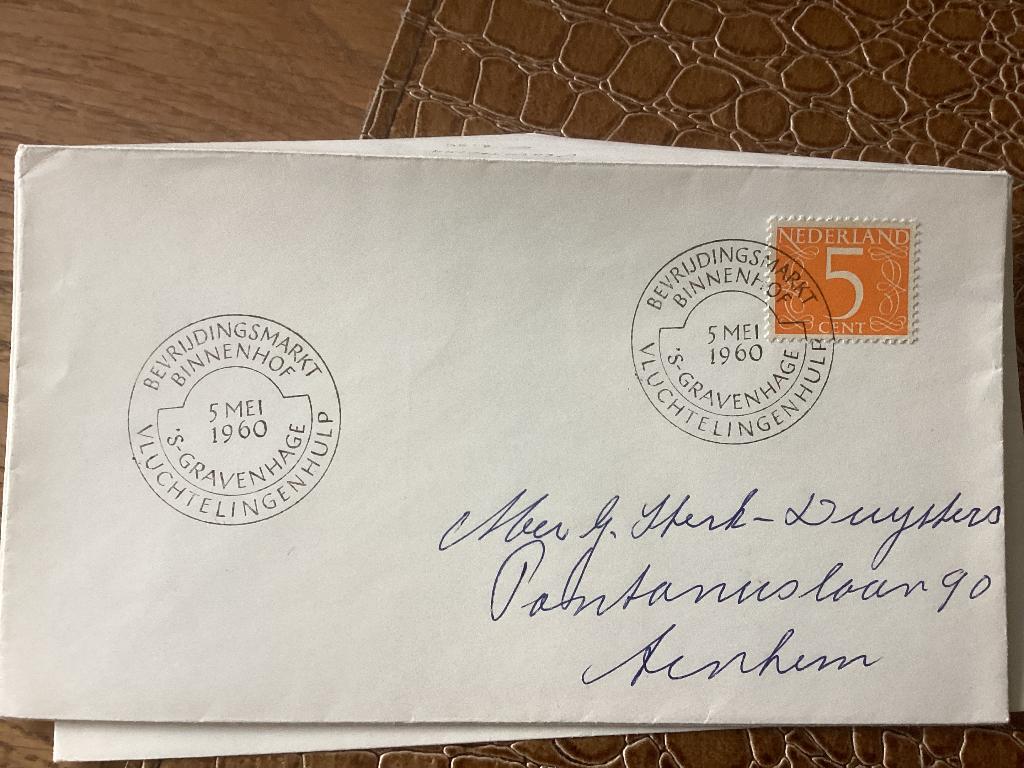 NEDERLAND
5
CENT
BEVRIJDINGSMARKT
BINNENHOF
5 MEI
1960
'S-GRAVENHAGE
VLUCHTELINGENHULP
BEVRIJDINGSMARKT
BINNENHOF
5 MEI
1960
'S-GRAVENHAGE
VLUCHTELINGENHULP
Mev G. Sterk-Duysters
Pontanuslaan 90
Arnhem